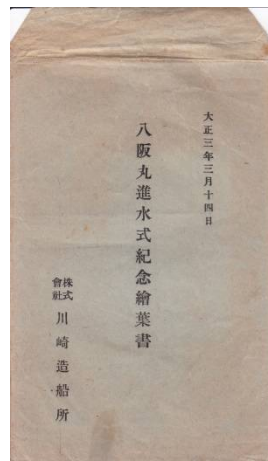 大正三年三月十四日
八阪丸進水式紀念繪葉書
株式會社川崎造船所